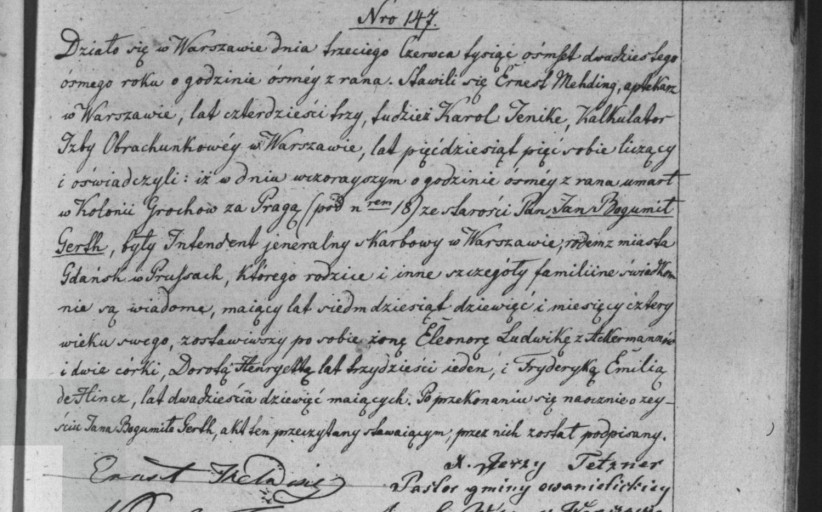 Nro 147.
Działo się w Warszawie dnia trzeciego Czerwca tysiąc ośmset dwudziestego
ósmego roku o godzinie ósméy z rana. Stawili się Ernest Mehding, aptekarz
w Warszawie, lat czterdzieści trzy, tudzież Karol Jenike, Kalkulator
Izby Obrachunkowéy w Warszawie, lat pięćdziesiąt pięć sobie liczący
i oświadczyli: iż w dniu wczorayszym o godzinie ósméy z rana umarł
w Kolonii Grochow za Pragą (pod nrem 18) ze starości Pan Jan Bogumił
Gerth, były Intendent jeneralny skarbowy w Warszawie, rodem z miasta
Gdańsk w Prussach, którego rodzice i inne szczegóły familiine świadko-
nie są wiadome, maiący lat siedmdziesiąt dziewięć i miesięcy cztery
wieku swego, zostawiwszy po sobie żonę Eleonorę Ludwikę z Ackermannów
i dwie córki, Dorotę Henryettę lat trzydzieści ieden, i Fryderykę Emilią
de Hincz, lat dwadzieścia dziewięć maiących. Po przekonaniu się naocznie o zey-
ściu Jana Bogumiła Gerth, akt ten przeczytany stawaiącym, przez nich został podpisany.
Ernst X. Jerzy Tetzner
Pastor gminy ewanielickiey